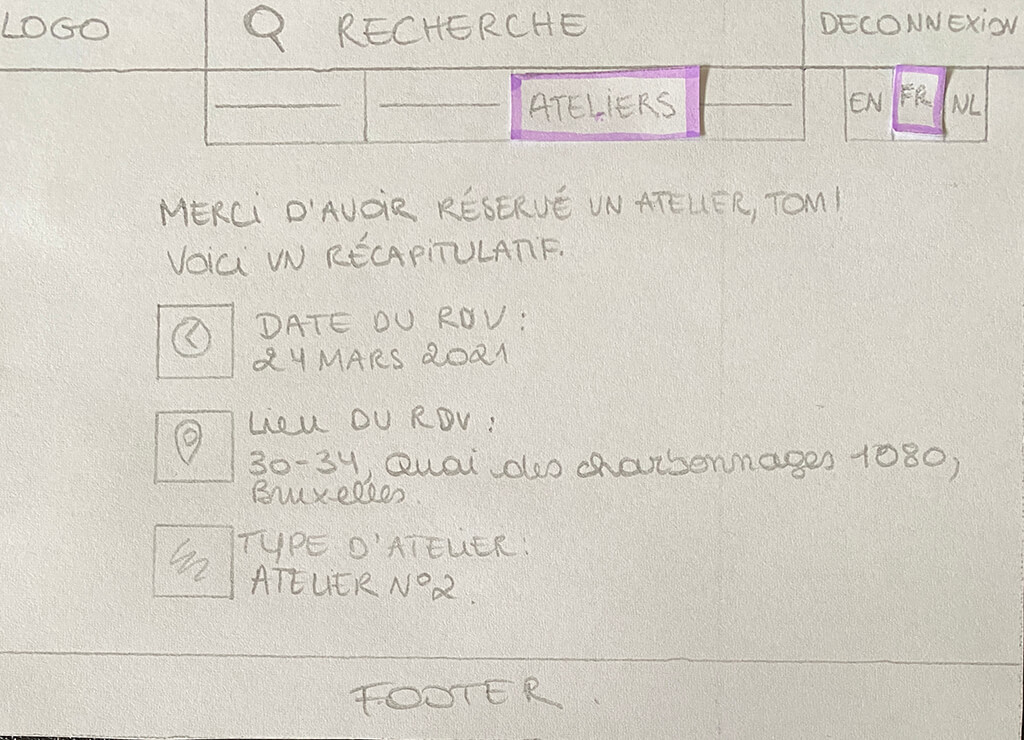 LOGO
RECHERCHE
DECONNEXION
ATELIERS
EN
FR
NL
MERCI D'AVOIR RÉSERVÉ UN ATELIER, TOM!
VOICI UN RÉCAPITULATIF.
DATE DU RDV :
24 MARS 2021
LIEU DU RDV :
30-34, Quai des charbonnages 1080,
Bruxelles.
TYPE D'ATELIER :
ATELIER N°2.
FOOTER.